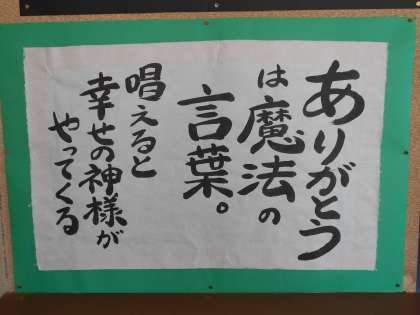 ありがとう
は魔法の
言葉。
唱えると
幸せの神様が
やってくる